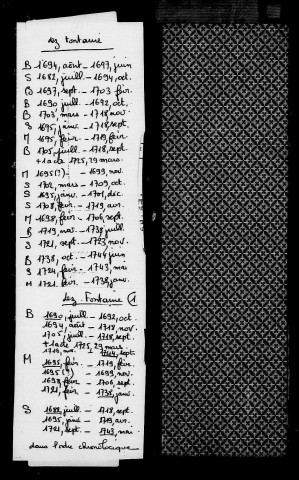 Lez Fontaine
B 1694, août - 1697, juin
S 1682, juill - 1694, oct.
B 1697, sept - 1703 fév.
B 1690 juill - 1692, oct.
B 1703, mars - 1718, nov
S 1695, janv. - 1718, sept.
M 1695, fév - 1719, fév.
B 1705, juill - 1718, sept.
+ 1 acte 1725, 29 mars.
M 1695 (?) - 1699, nov.
S 1702, mars - 1709, oct.
S 1695, janv - 1701, déc.
S 1708, fév - 1719, avr.
M 1698, fév - 1706, sept.
B 1719, nov - 1738, juill.
S 1721, sept - 1723, nov.
B 1738, oct - 1744, juin
S 1724, fév - 1743, mai
M 1721, fév - 1738, janv.
Lez-Fontaine (1
B 1690, juill - 1692, oct.
1694, août - 1718, nov.
1705, juill - 1718, sept.
+ 1 acte 1725, 29 mars
1719, nov. - 1744, sept.
M 1695, fév - 1719, fév.
1695 (?) - 1699, nov.
1698, fév - 1706, sept.
1721, fév - 1738, janv.
S 1682, juill - 1718, sept.
1695, janv - 1719, avr.
1721, sept - 1743, mai.
dans l'ordre chronologique